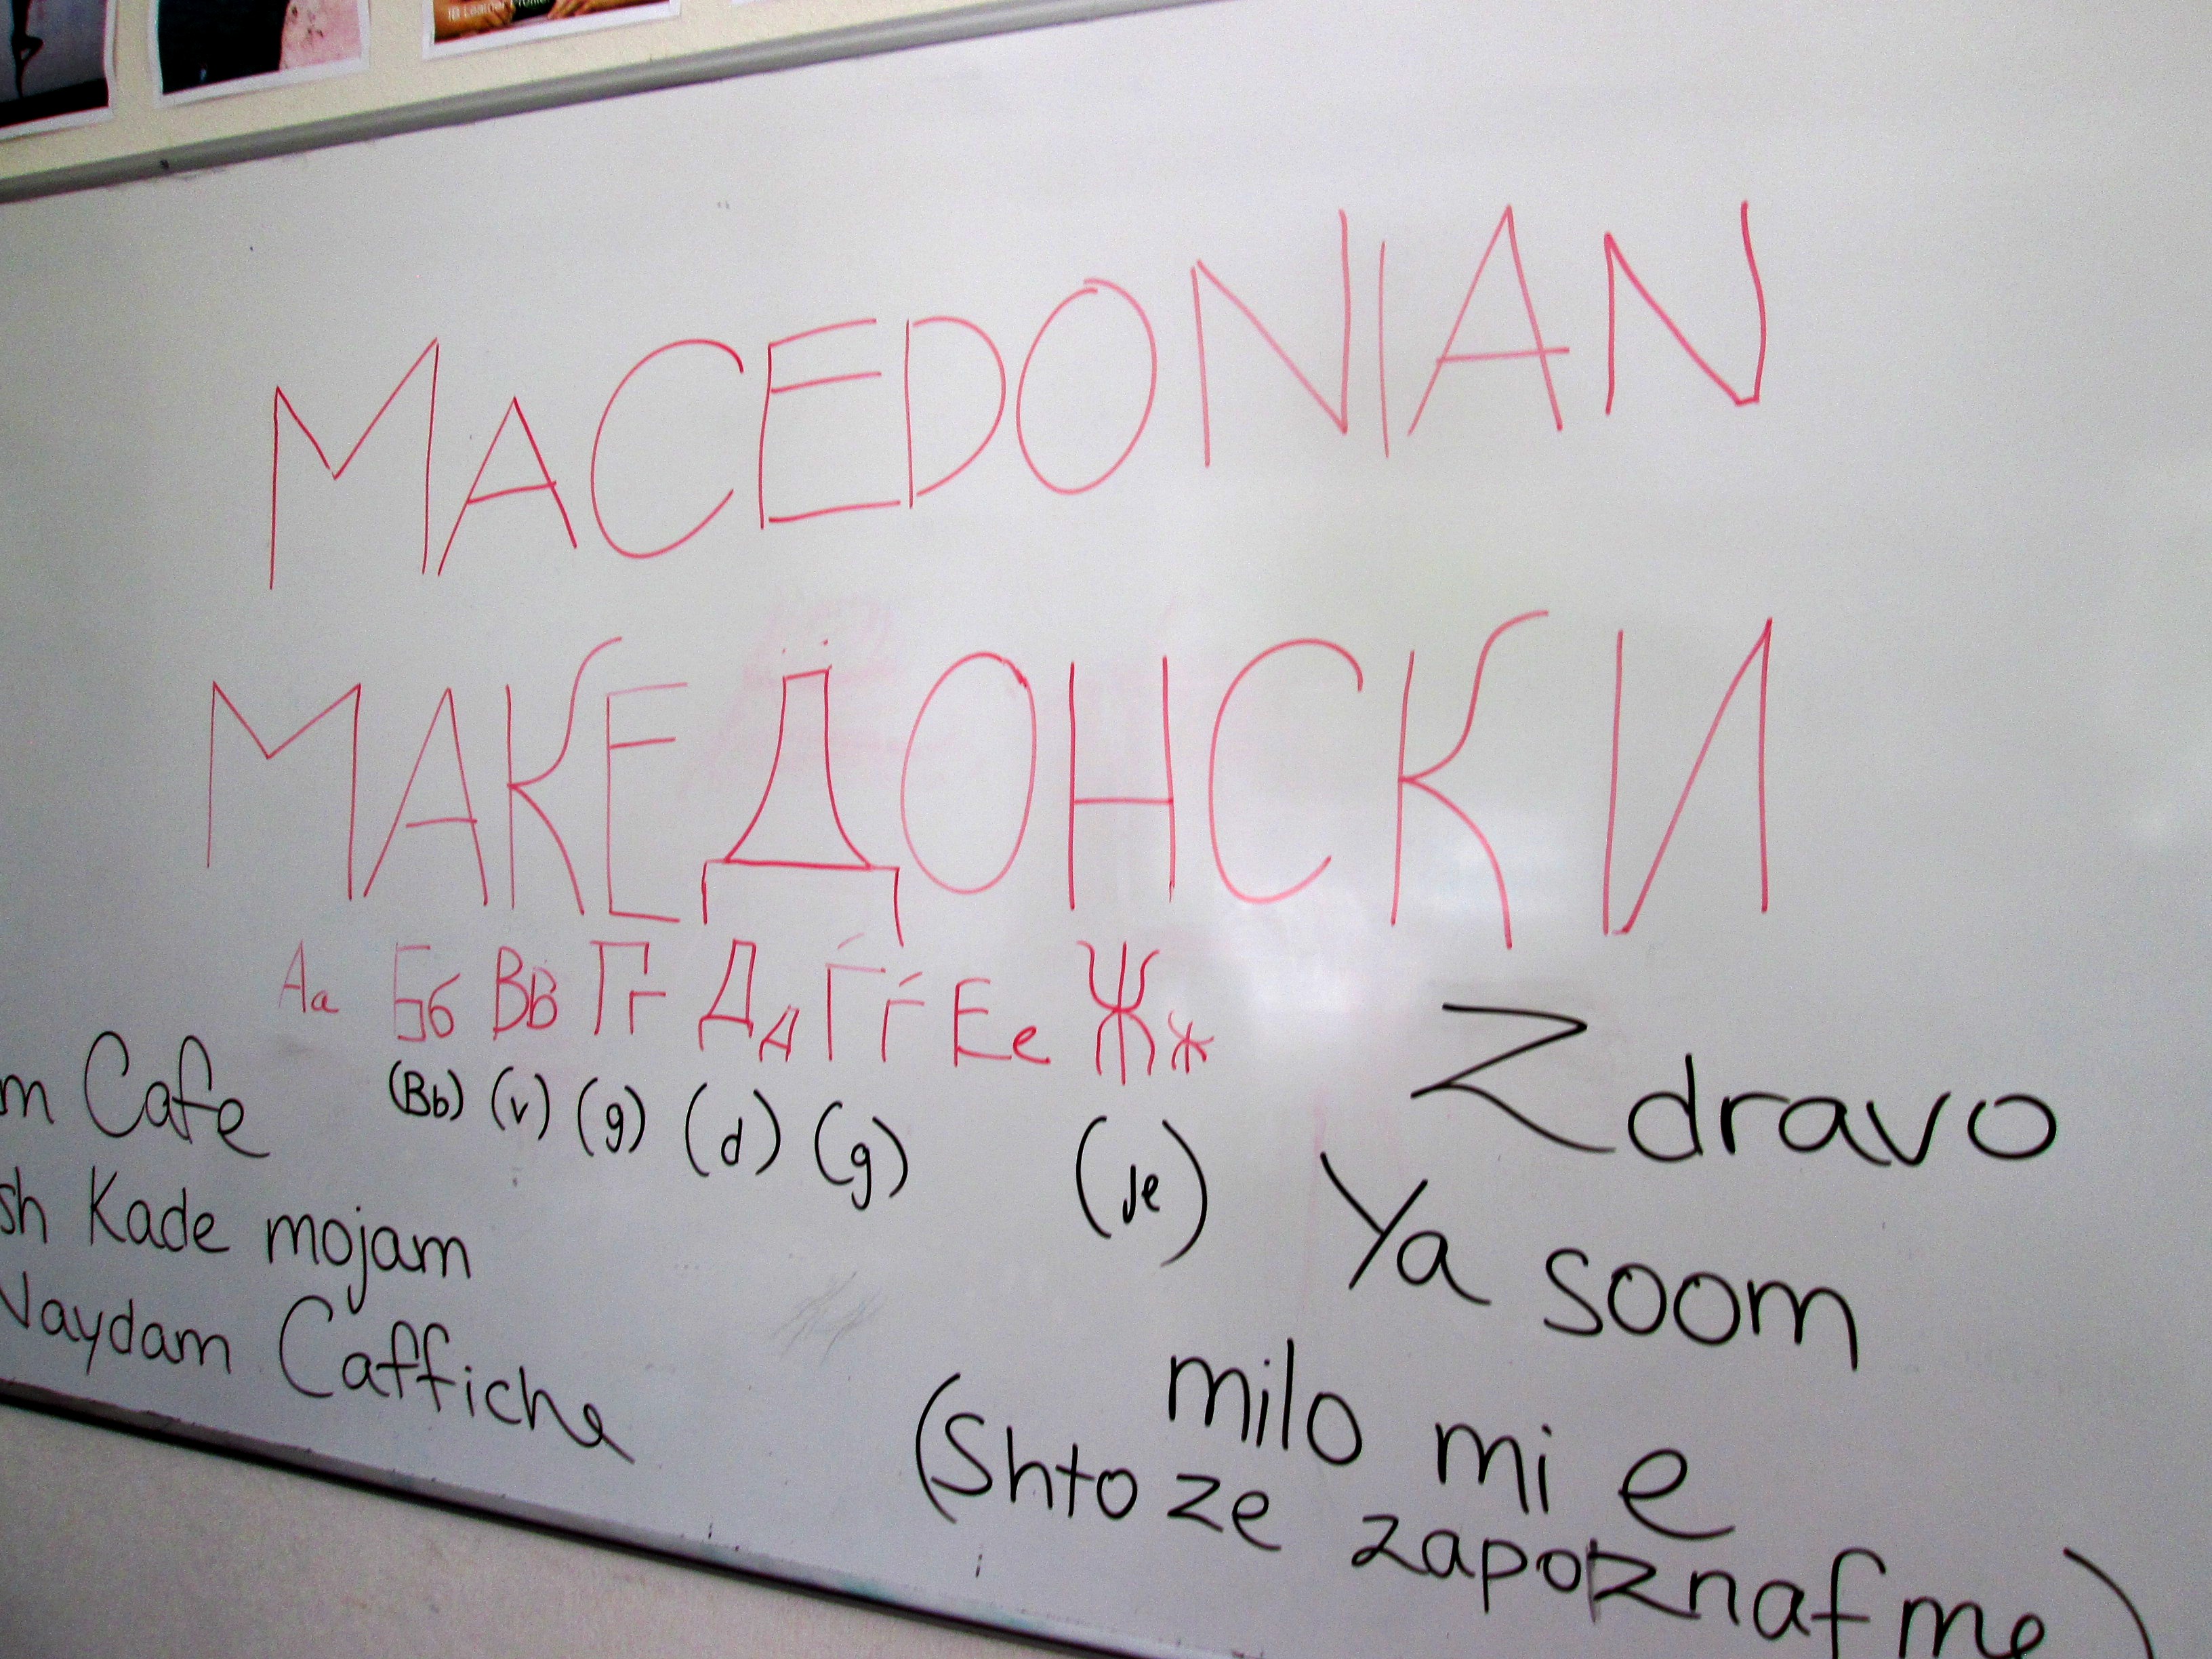 IB Learner Profile
MACEDONIAN
МАКЕДОНСКИ
Аа Бб Вв Гг Дд Ѓѓ Ее Жж
(Bb) (v) (g) (d) (g) (je)
m Cafe
sh Kade mojam
Naydam Caffiche
Zdravo
Ya soom
milo mi e
(Shto ze zapoznafme)